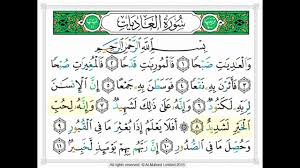 سُورَةُ الْعَادِيَاتِ
بِسْمِ اللَّهِ الرَّحْمَٰنِ الرَّحِيمِ
وَالْعَٰدِيَٰتِ ضَبْحًا ١ فَالْمُورِيَٰتِ قَدْحًا ٢ فَالْمُغِيرَٰتِ صُبْحًا
٣ فَأَثَرْنَ بِهِ نَقْعًا ٤ فَوَسَطْنَ بِهِ جَمْعًا ٥ إِنَّ الْإِنسَٰنَ
لِرَبِّهِ لَكَنُودٌ ٦ وَإِنَّهُ عَلَىٰ ذَٰلِكَ لَشَهِيدٌ ٧ وَإِنَّهُ لِحُبِّ
الْخَيْرِ لَشَدِيدٌ ٨ أَفَلَا يَعْلَمُ إِذَا بُعْثِرَ مَا فِي الْقُبُورِ
٩ وَحُصِّلَ مَا فِي الصُّدُورِ ١٠ إِنَّ رَبَّهُم بِهِمْ يَوْمَئِذٍ لَّخَبِيرٌ ١١
All rights reserved. © Al Muhaed Limited 2015